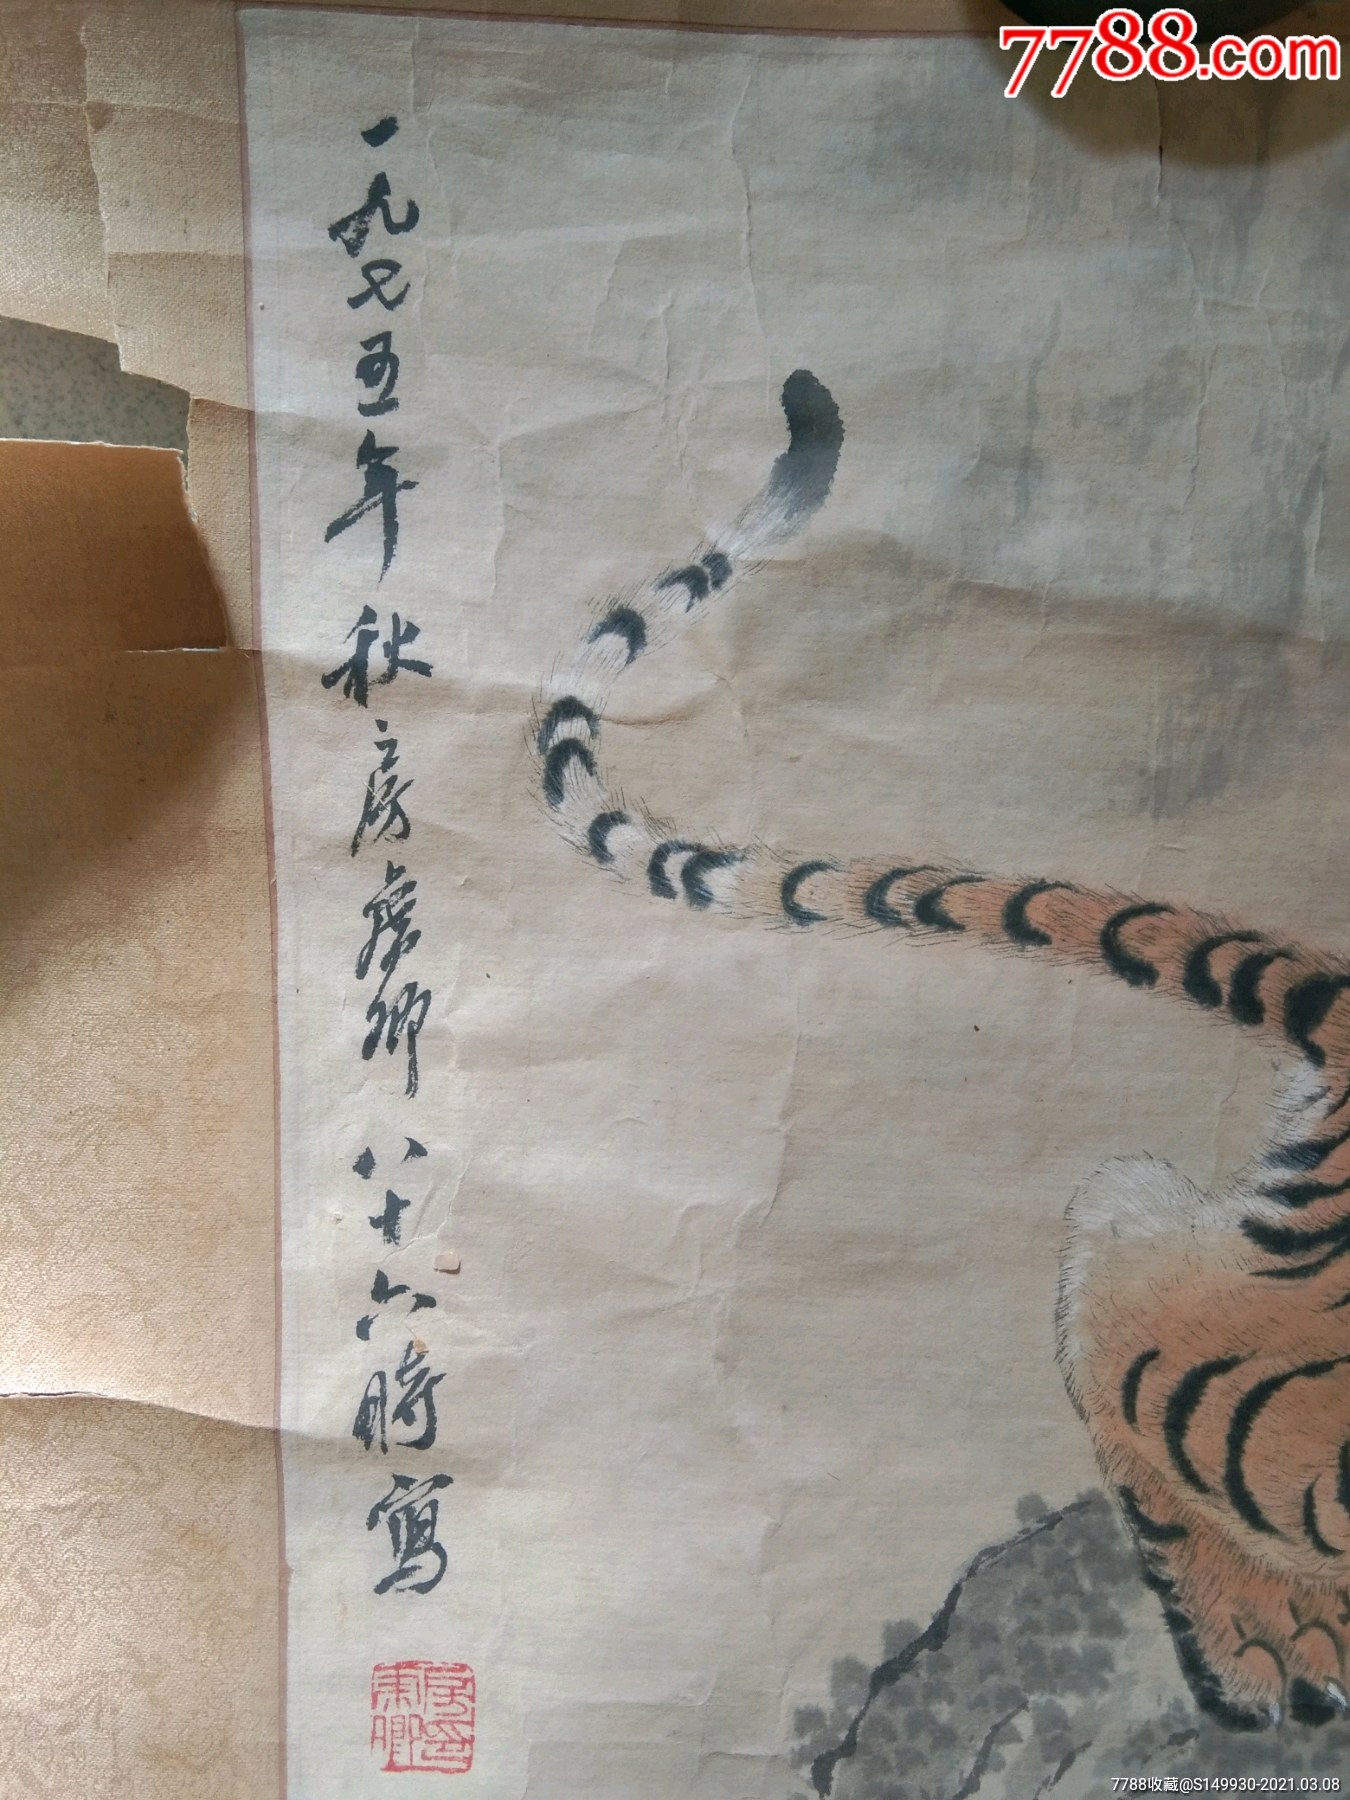 7788.com
一九七五年秋房虞卿八十六時寫
7788收藏@S149930-2021.03.08